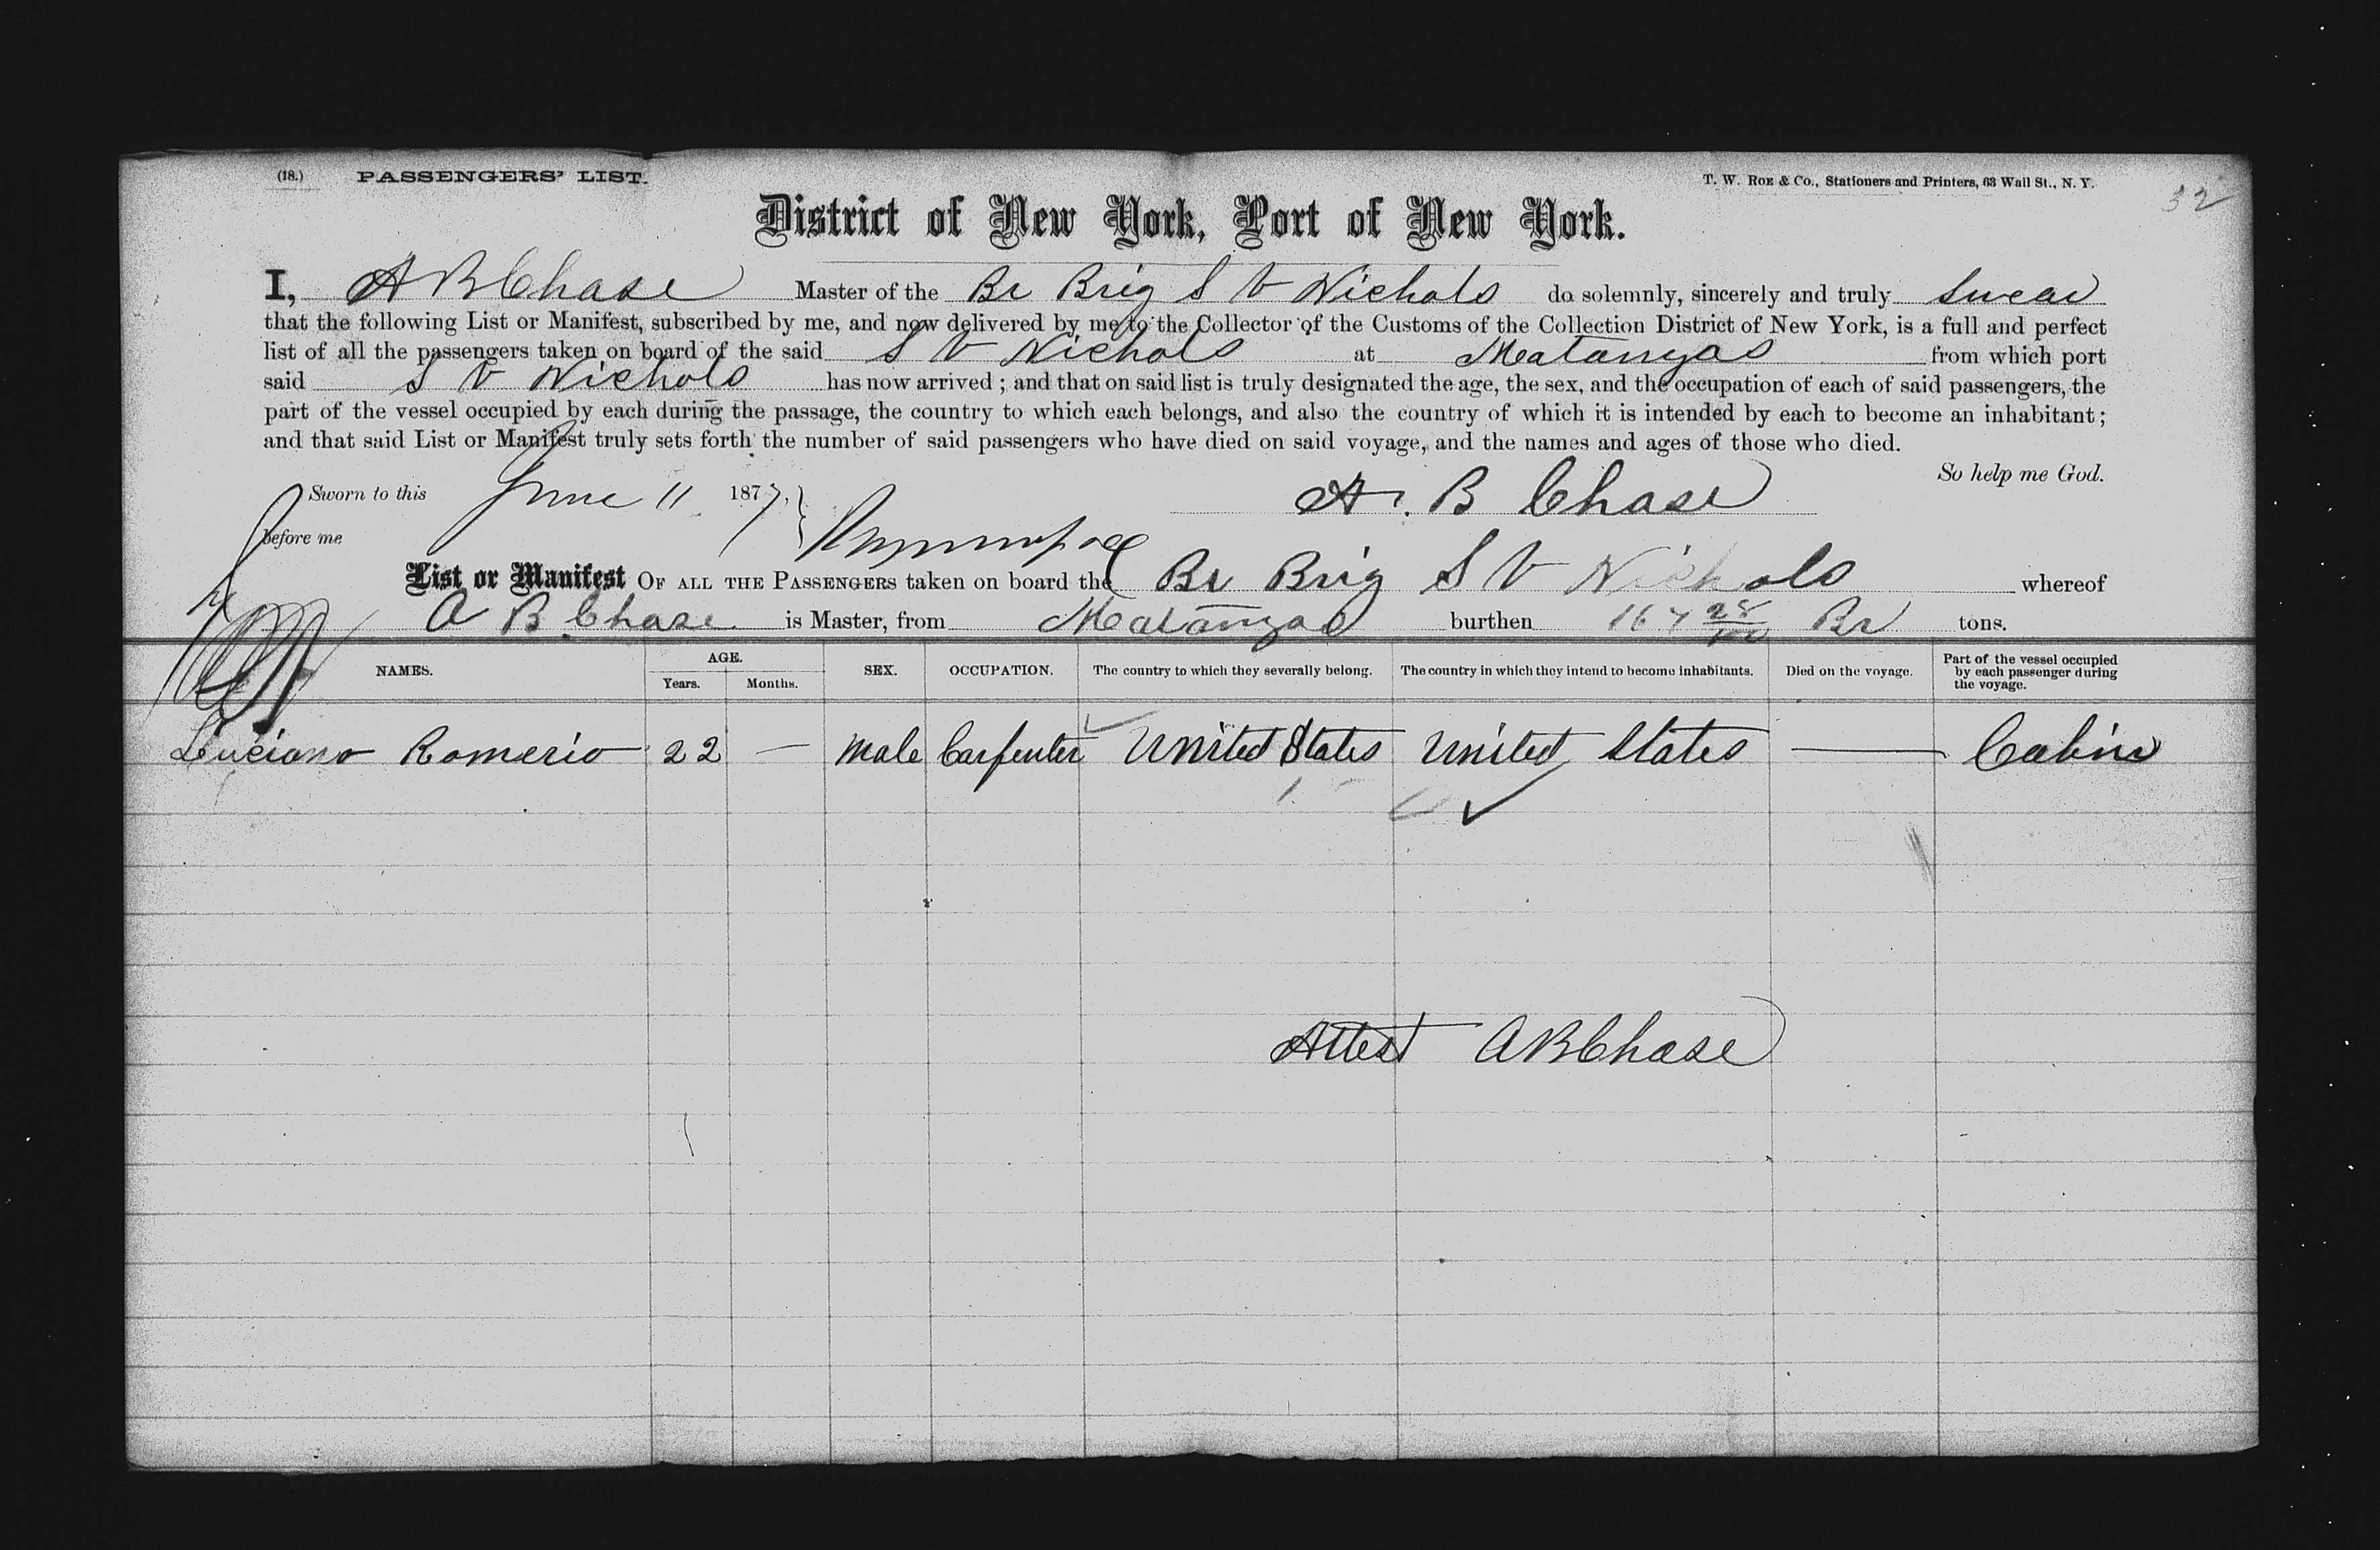 (18.) PASSENGERS' LIST. T. W. ROE & Co., Stationers and Printers, 63 Wall St., N. Y. 32
District of New York, Port of New York.
I, A B Chase Master of the Br Brig S V Nichols do solemnly, sincerely and truly swear
that the following List or Manifest, subscribed by me, and now delivered by me to the Collector of the Customs of the Collection District of New York, is a full and perfect
list of all the passengers taken on board of the said S V Nichols at Matanzas from which port
said S V Nichols has now arrived ; and that on said list is truly designated the age, the sex, and the occupation of each of said passengers, the
part of the vessel occupied by each during the passage, the country to which each belongs, and also the country of which it is intended by each to become an inhabitant ;
and that said List or Manifest truly sets forth the number of said passengers who have died on said voyage, and the names and ages of those who died.
So help me God.
Sworn to this June 11 1877. A. B Chase
before me
List or Manifest OF ALL THE PASSENGERS taken on board the Br Brig S V Nichols whereof
A B Chase is Master, from Matanzas burthen 167 28/100 Br tons.
NAMES. AGE. Years. Months. SEX. OCCUPATION. The country to which they severally belong. The country in which they intend to become inhabitants. Died on the voyage. Part of the vessel occupied by each passenger during the voyage.
Luciano Romerio 22 — Male Carpenter United States United States — Cabin
Attest A B Chase